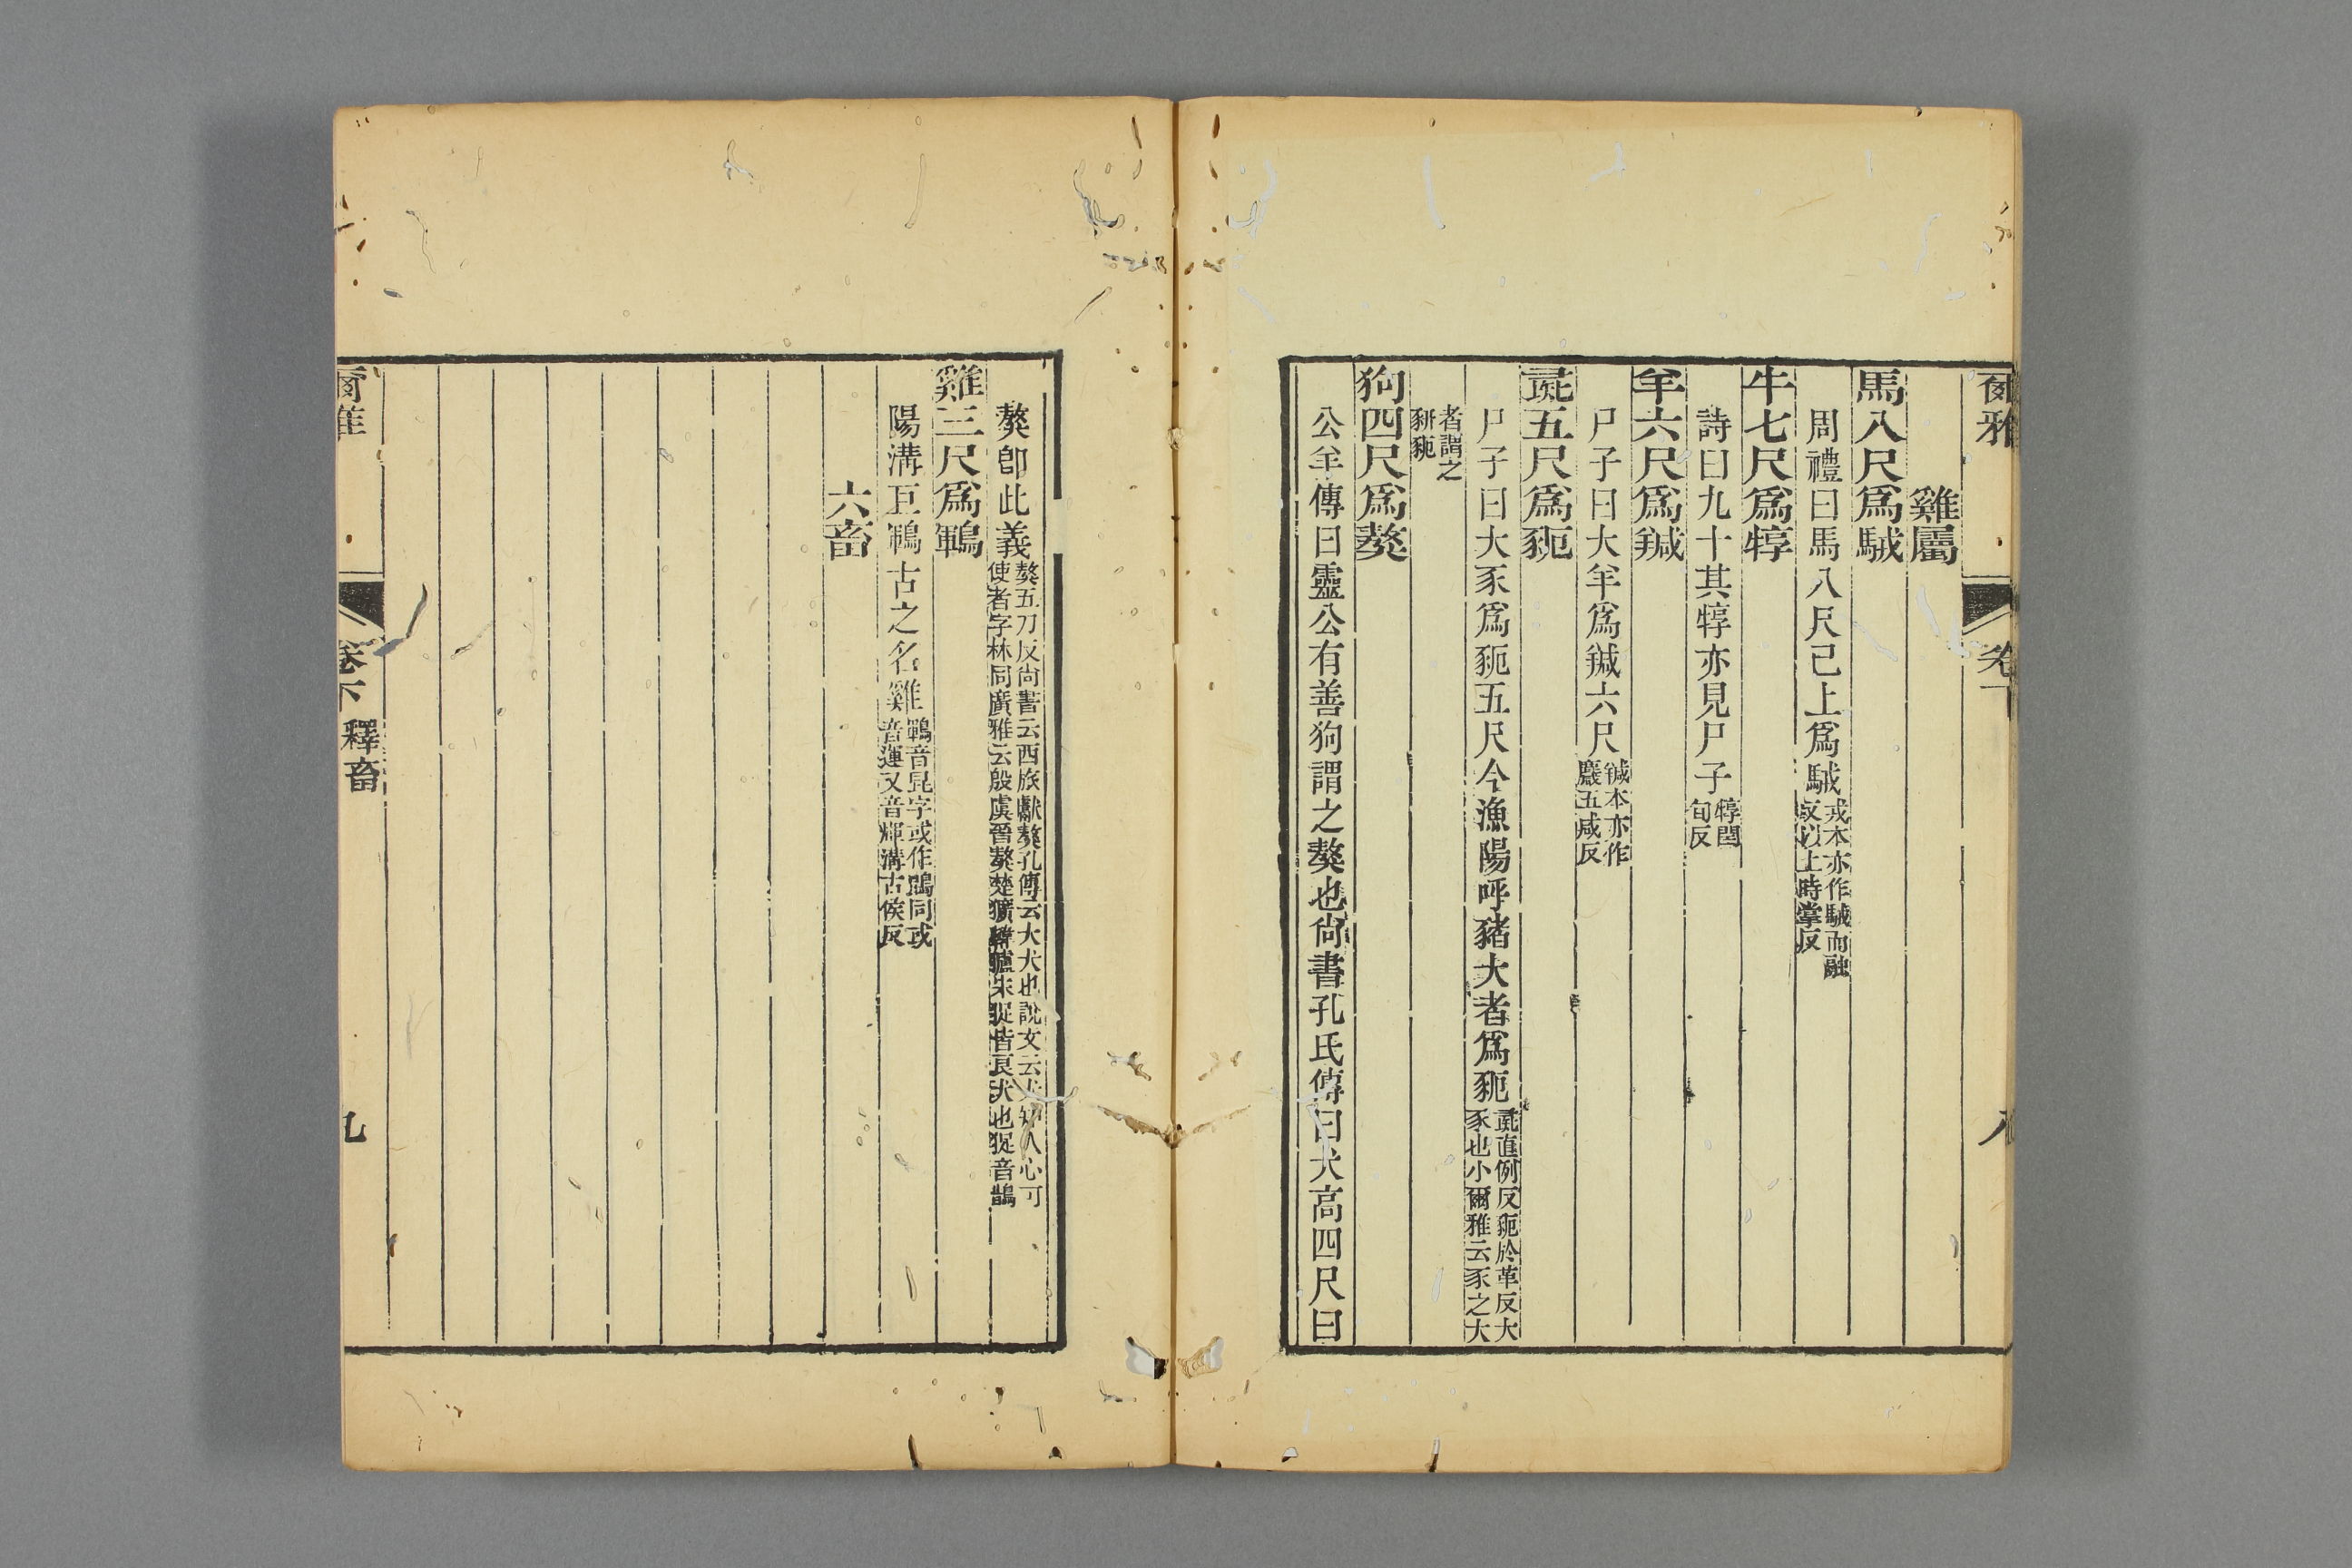 爾雅 卷下 八
雞屬
馬八尺爲駥
周禮曰馬八尺已上爲駥戎本亦作駥而融
反以上時掌反
牛七尺爲犉
詩曰九十其犉亦見尸子犉閏
旬反
羊六尺爲羬
尸子曰大羊爲羬六尺羬本亦作
麙五咸反
彘五尺爲䝈
尸子曰大豕爲䝈五尺今漁陽呼豬大者爲䝈彘直例反䝈於革反大
豕也小爾雅云豕之大
者謂之
豣䝈
狗四尺爲獒
公羊傳曰靈公有善狗謂之獒也尙書孔氏傳曰犬高四尺曰
獒卽此義獒五刀反尙書云西旅獻獒孔傳云大犬也說文云犬知人心可
使者字林同廣雅云殷虞晉獒楚獚韓獹宋㹱皆良犬也㹱音鵲
雞三尺爲鶤
陽溝巨鶤古之名雞鶤音昆字或作鵾同或
音運又音輝溝古侯反
六畜
爾雅 卷下 釋畜 九